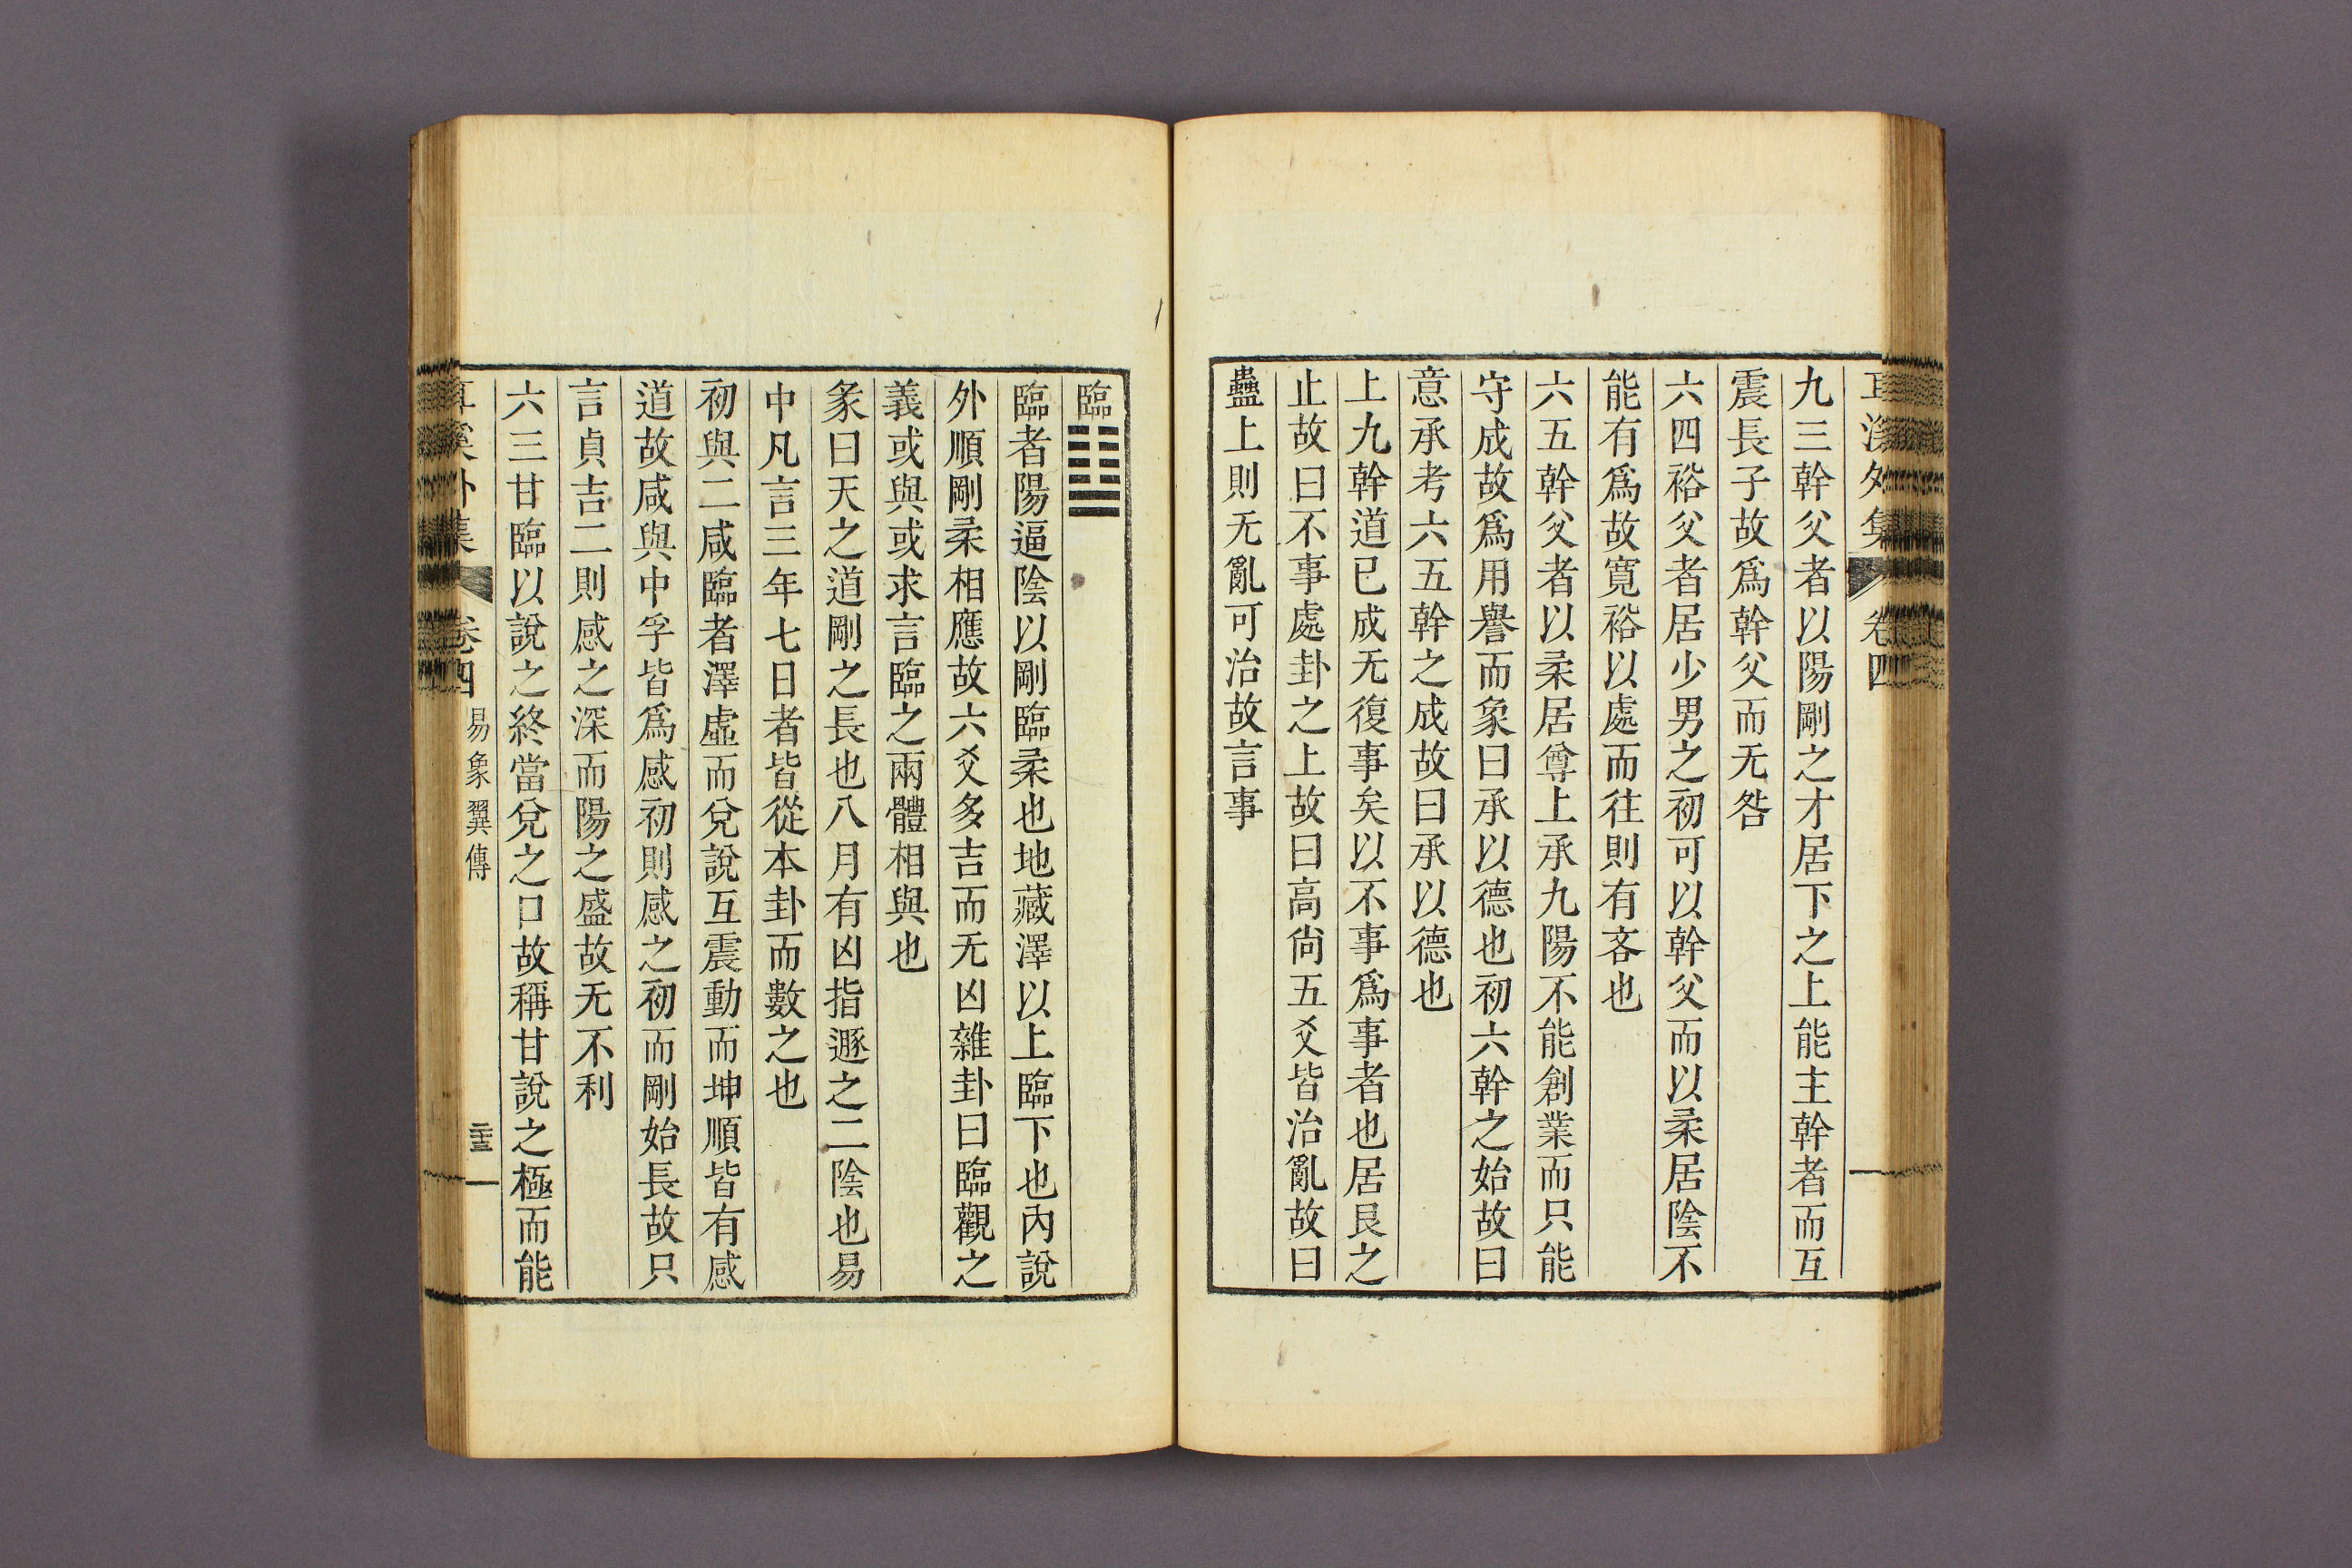 外集 卷四
九三幹父者以陽剛之才居下之上能主幹者而互
震長子故爲幹父而无咎
六四裕父者居少男之初可以幹父而以柔居陰不
能有爲故寬裕以處而往則有吝也
六五幹父者以柔居尊上承九陽不能創業而只能
守成故爲用譽而象曰承以德也初六幹之始故曰
意承考六五幹之成故曰承以德也
上九幹道已成无復事矣以不事爲事者也居艮之
止故曰不事處卦之上故曰高尙五爻皆治亂故曰
蠱上則无亂可治故言事
臨䷒
臨者陽逼陰以剛臨柔也地藏澤以上臨下也內說
外順剛柔相應故六爻多吉而无凶雜卦曰臨觀之
義或與或求言臨之兩體相與也
彖曰天之道剛之長也八月有凶指遯之二陰也易
中凡言三年七日者皆從本卦而數之也
初與二咸臨者澤虛而兌說互震動而坤順皆有感
道故咸與中孚皆爲感初則感之初而剛始長故只
言貞吉二則感之深而陽之盛故无不利
六三甘臨以說之終當兌之口故稱甘說之極而能
外集 卷四 易象翼傳